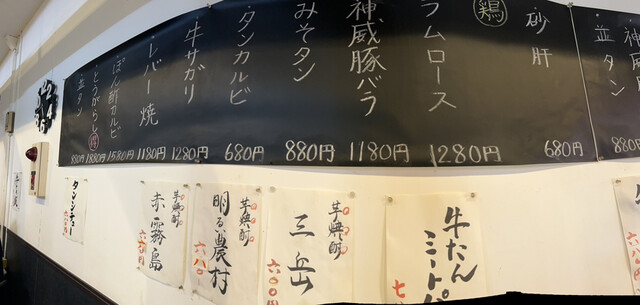 神威
並タン
880円
砂肝
680円
鶏
ラムロース
1280円
神威豚バラ
1180円
みそタン
880円
タンカルビ
680円
牛サガリ
1280円
レバー焼
1180円
ぽん酢カルビ
1580円
とうがらし
1880円
並タン
880円
牛たん
ミートパ
七
芋焼酎
三岳
六〇〇円
芋焼酎
明るい農村
六八〇
芋焼酎
赤霧島
タンシチュー